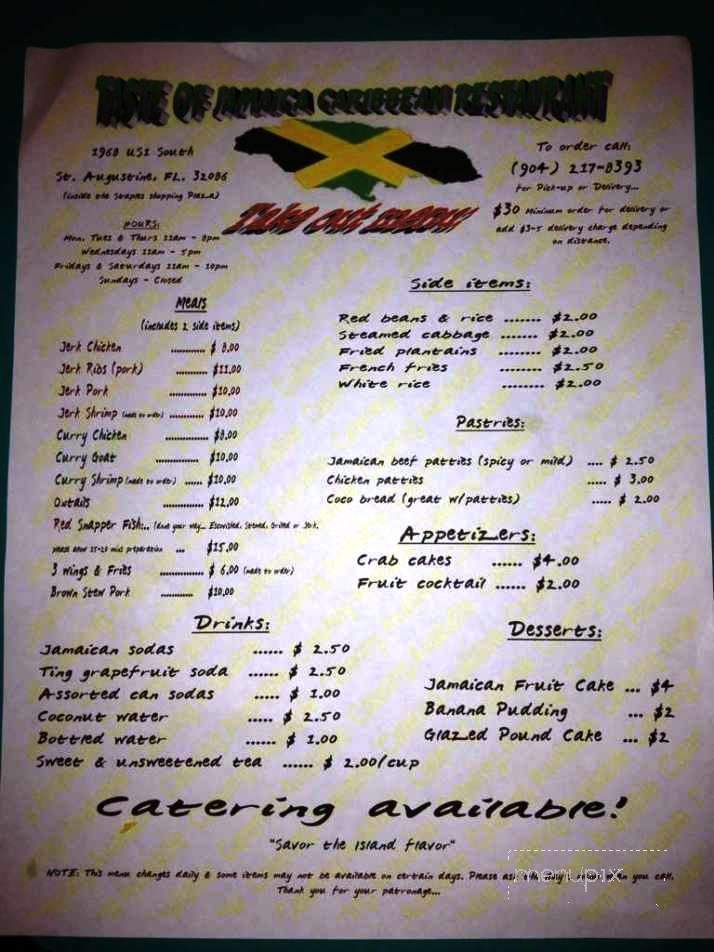 TASTE OF JAMAICA CARIBBEAN RESTAURANT
1968 US1 South
St. Augustine, FL. 32086
(inside the Staples shopping Plaza)
HOURS:
Mon, Tues & Thurs 11am - 8pm
Wednesdays 11am - 5pm
Fridays & Saturdays 11am - 10pm
Sundays - Closed
To order call:
(904) 217-8393
for Pick-up or Delivery...
$30 Minimum order for delivery or
add $3-5 delivery charge depending
on distance.
Take out menu!
Meals
(includes 2 side items)
Jerk Chicken ............ $ 8.00
Jerk Ribs (pork) ........... $11.00
Jerk Pork ............. $10.00
Jerk Shrimp (made to order) ............. $10.00
Curry Chicken .............. $8.00
Curry Goat .............. $10.00
Curry Shrimp (made to order) ...... $10.00
Oxtails ............. $12.00
Red Snapper Fish... (done your way... Escovished, Stewed, Grilled or Jerk,
please allow 15-20 mins preparation ... $15.00
3 wings & Fries ............... $ 6.00 (made to order)
Brown Stew Pork ........... $10.00
Side items:
Red beans & rice ....... $2.00
Steamed cabbage ....... $2.00
Fried plantains ........ $2.00
French fries ........ $2.50
White rice ........ $2.00
Pastries:
Jamaican beef patties (spicy or mild) .... $ 2.50
Chicken patties ..... $ 3.00
Coco bread (great w/patties) ..... $ 2.00
Appetizers:
Crab cakes ...... $4.00
Fruit cocktail ...... $2.00
Drinks:
Jamaican sodas ...... $ 2.50
Ting grapefruit soda ...... $ 2.50
Assorted can sodas ..... $ 1.00
Coconut water ..... $ 2.50
Bottled water ...... $ 1.00
Sweet & unsweetened tea ...... $ 2.00/cup
Desserts:
Jamaican Fruit Cake ... $4
Banana Pudding ... $2
Glazed Pound Cake ... $2
Catering available!
"Savor the Island flavor"
NOTE: This menu changes daily & some items may not be available on certain days. Please ask when you call.
Thank you for your patronage...
menupix